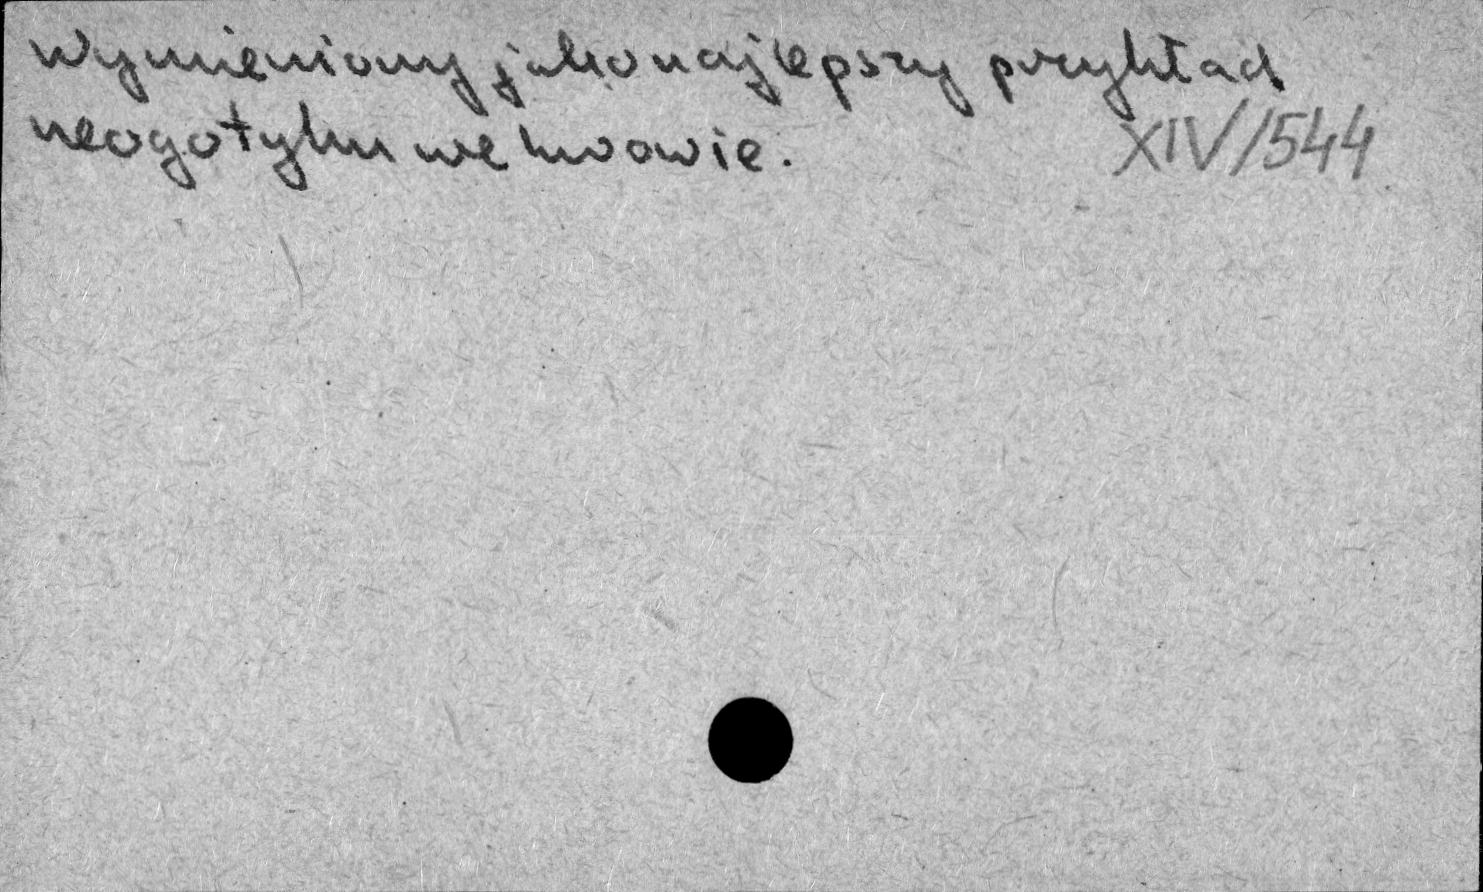 Wymieniony jako najlepszy przykład
neogotyku we Lwowie.
XIV/544